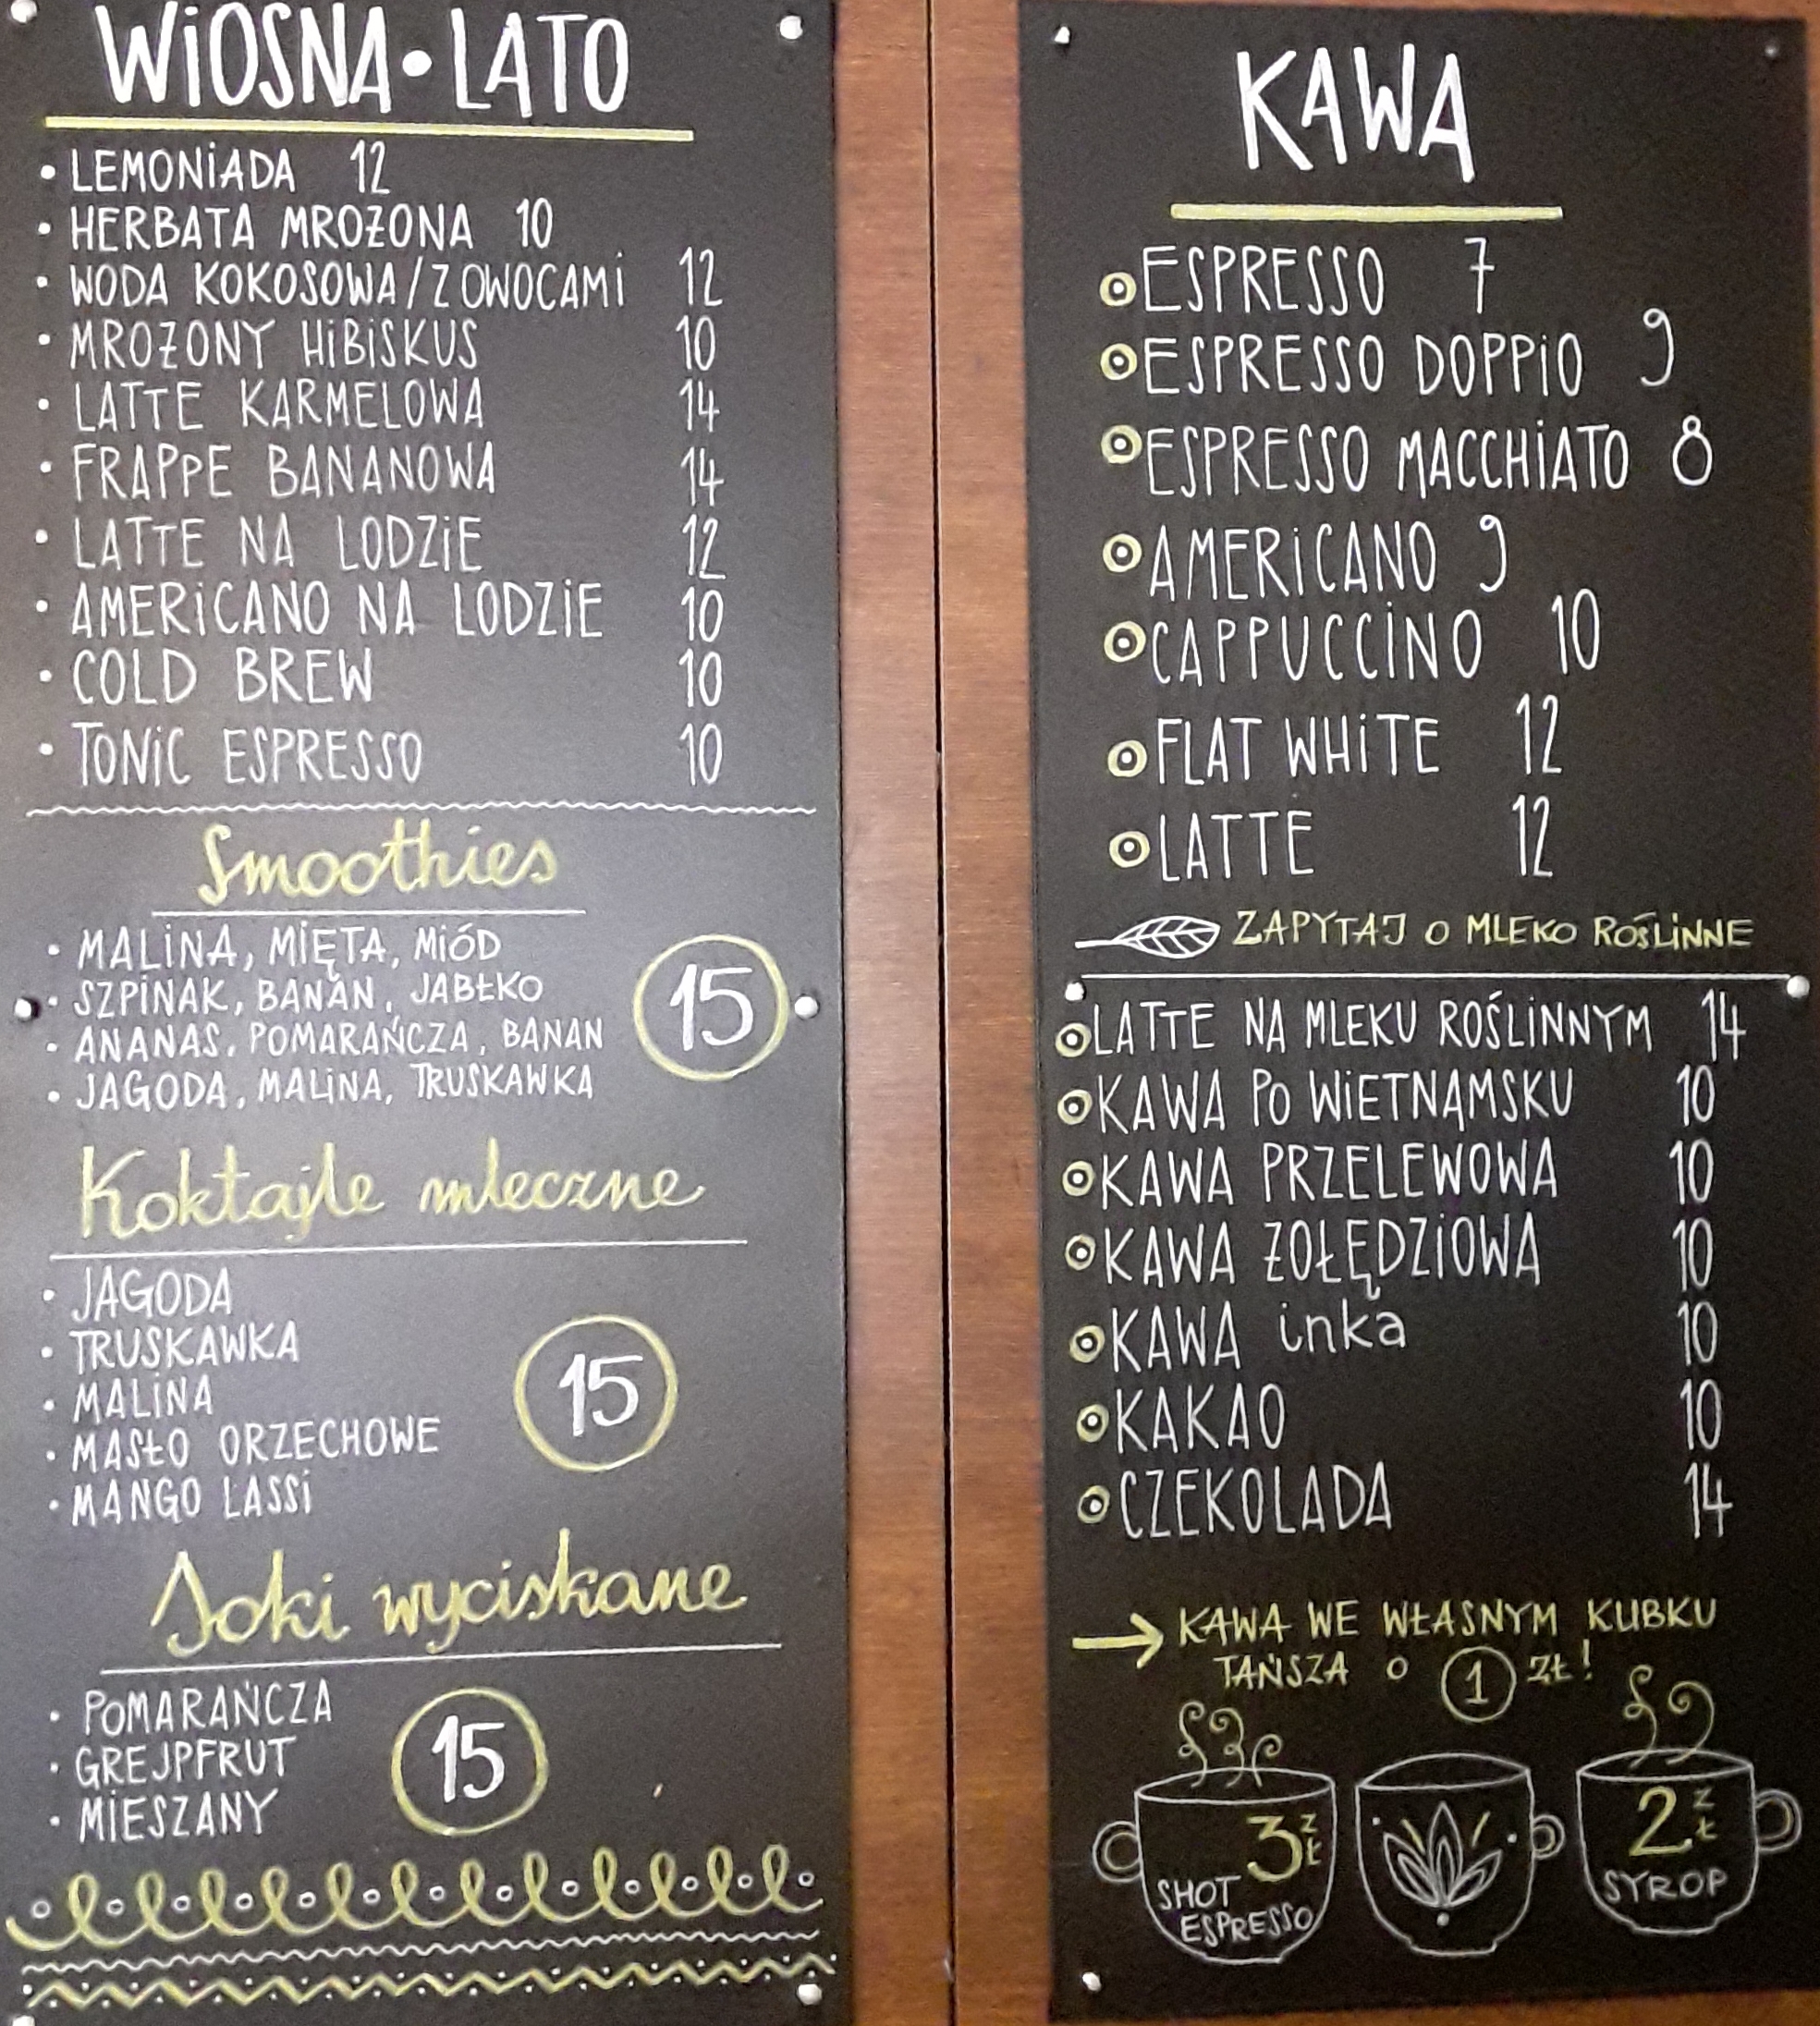 WiOSNA • LATO
• LEMONiADA 12
• HERBATA MROŻONA 10
• WODA KOKOSOWA/Z OWOCAMi 12
• MROŻONY HiBiSKUS 10
• LATTE KARMELOWA 14
• FRAPPE BANANOWA 14
• LATTE NA LODZiE 12
• AMERiCANO NA LODZiE 10
• COLD BREW 10
• TONiC ESPRESSO 10
Smoothies
• MALiNA, MiĘTA, MiÓD
• SZPiNAK, BANAN, JABŁKO
• ANANAS, POMARAŃCZA, BANAN
• JAGODA, MALiNA, TRUSKAWKA
15
Koktajle mleczne
• JAGODA
• TRUSKAWKA
• MALiNA
• MASŁO ORZECHOWE
• MANGO LASSi
15
Soki wyciskane
• POMARAŃCZA
• GREJPFRUT
• MiESZANY
15
KAWA
ESPRESSO 7
ESPRESSO DOPPiO 9
ESPRESSO MACCHiATO 8
AMERiCANO 9
CAPPUCCiNO 10
FLAT WHiTE 12
LATTE 12
ZAPYTAJ O MLEKO ROŚLiNNE
LATTE NA MLEKU ROŚLiNNYM 14
KAWA PO WiETNAMSKU 10
KAWA PRZELEWOWA 10
KAWA ŻOŁĘDZiOWA 10
KAWA inka 10
KAKAO 10
CZEKOLADA 14
→ KAWA WE WŁASNYM KUBKU
TAŃSZA O 1 ZŁ!
3 ZŁ
SHOT
ESPRESSO
2 ZŁ
SYROP